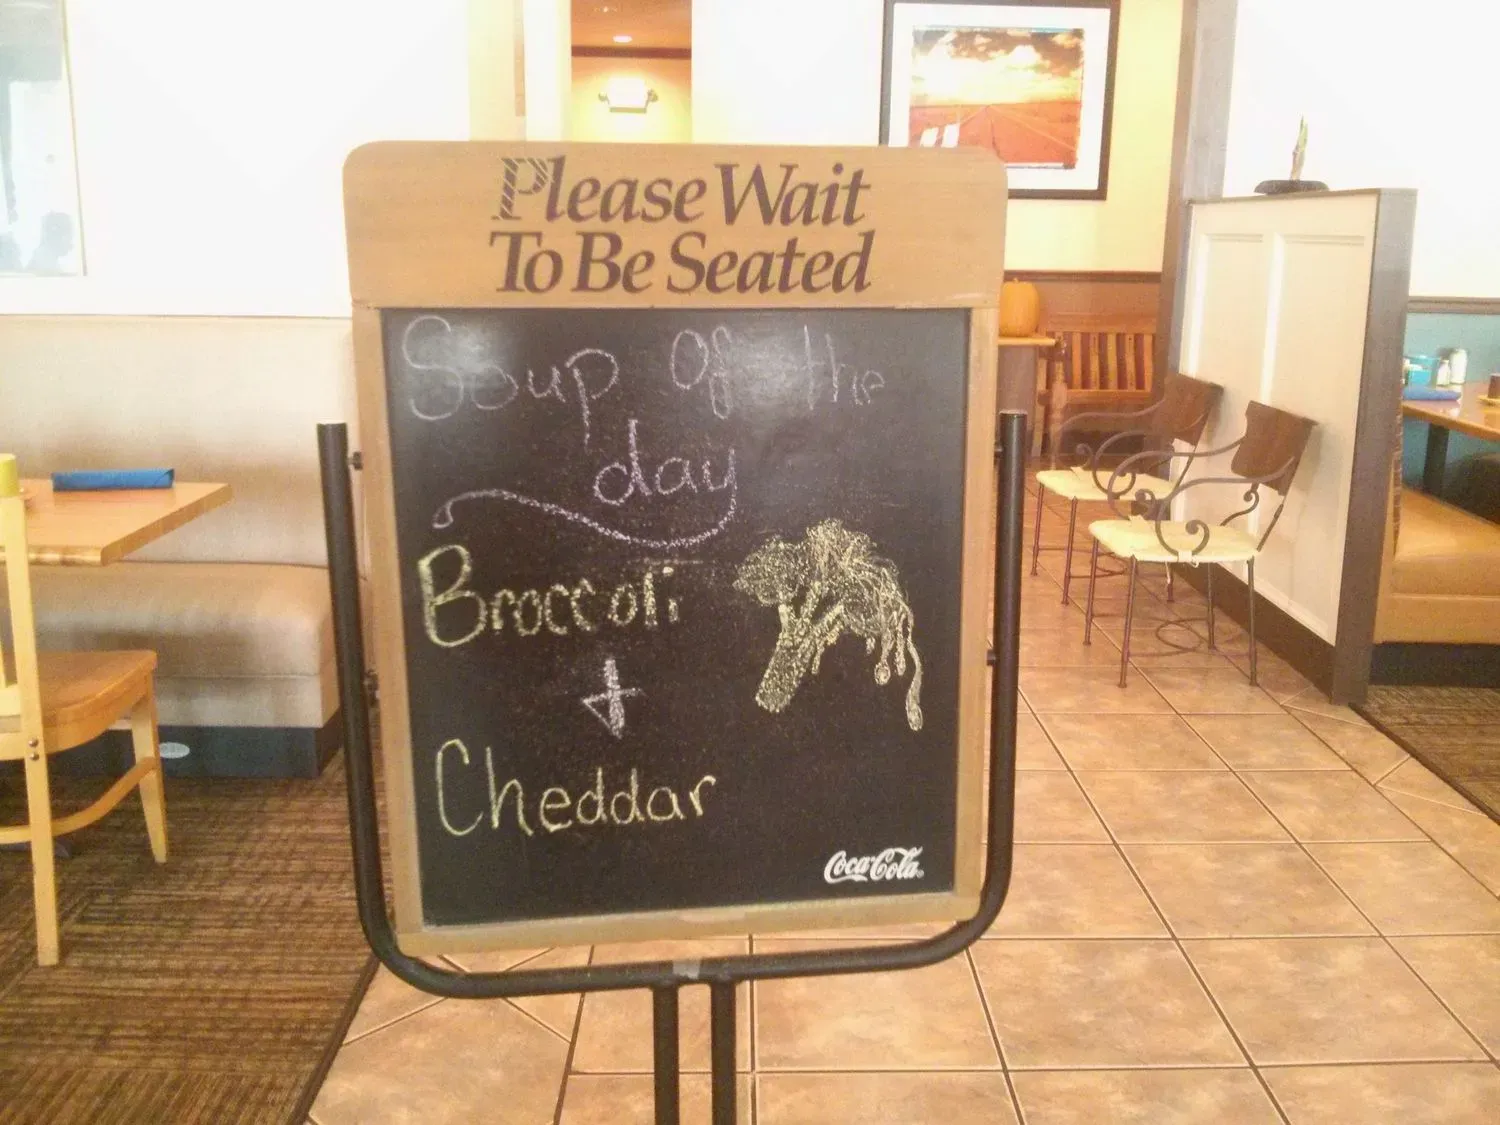 Please Wait
To Be Seated
Soup of the
day
Broccoli
+
Cheddar
Coca-Cola